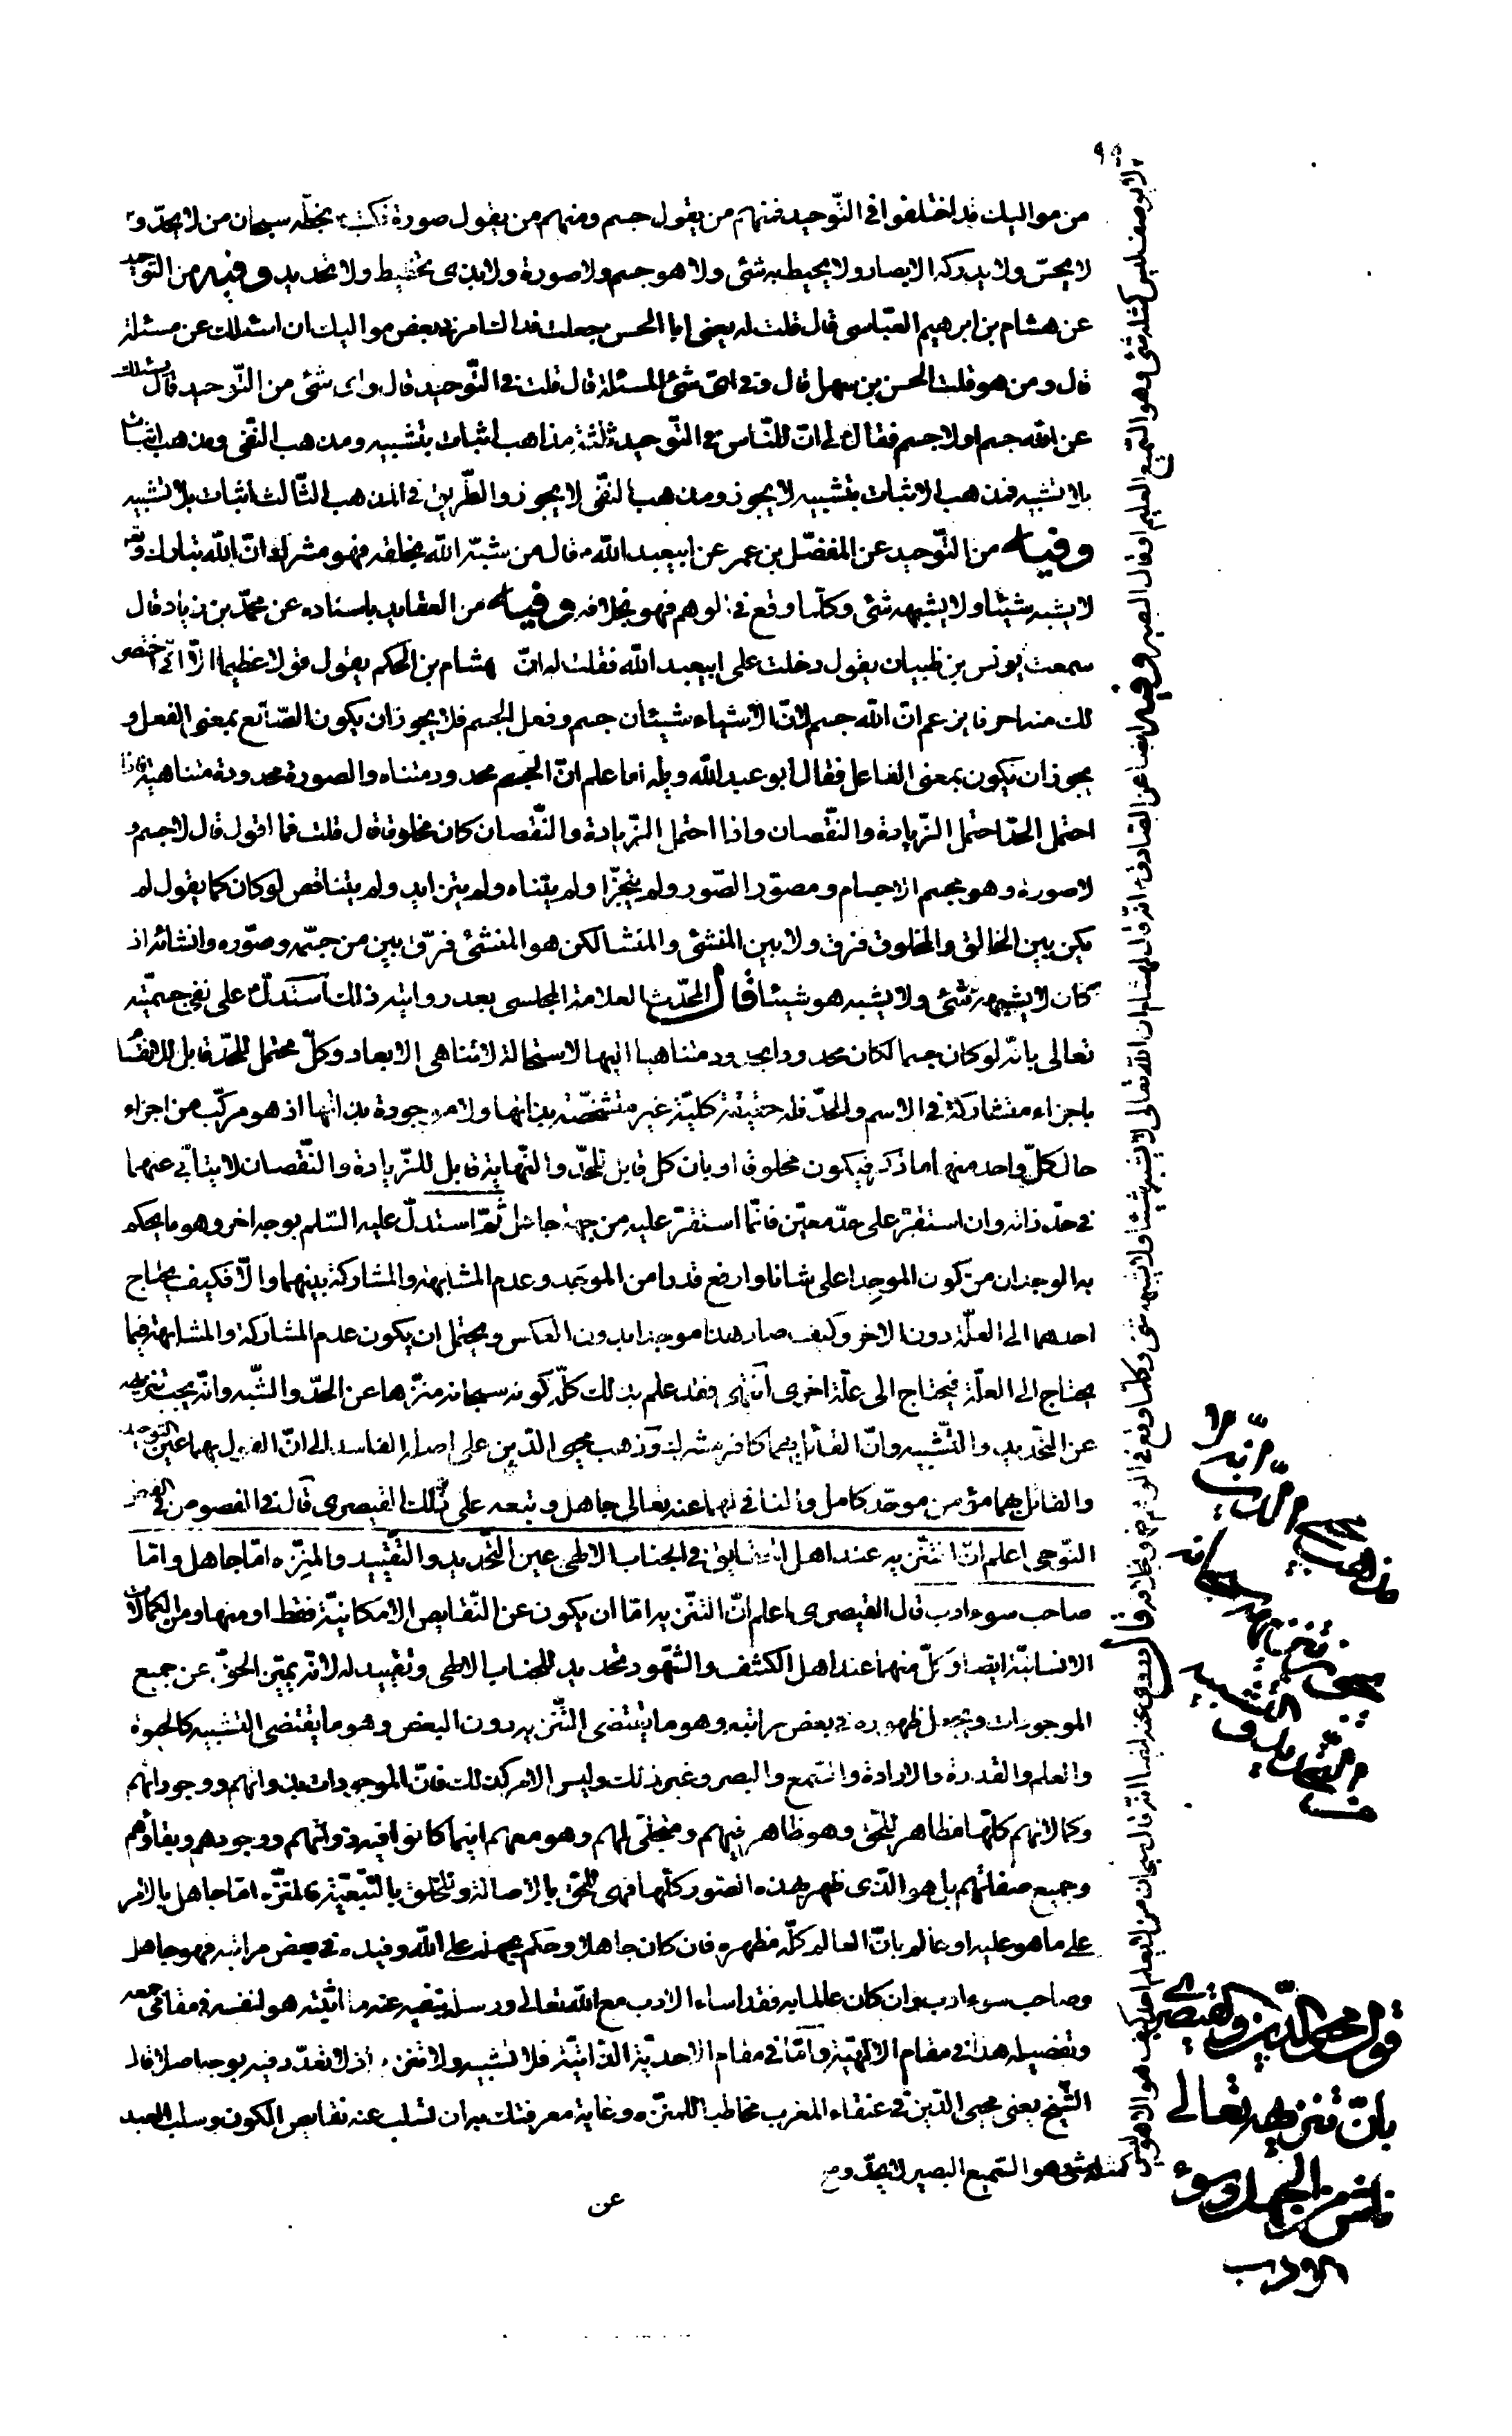 ٩٥
من مواليك قد اختلفوا في التّوحيد فمنهم من يقول جسم ومنهم من يقول صورة فكتب بخطّه سبحان من لا يحدّ و
لا يحسّ ولا يدركه الابصار ولا يحيط به شئ ولا هو جسم ولا صورة ولا بذى تخطيط ولا تحديد وفيه من التوحيد
عن هشام بن ابرهيم العبّاسى قال قلت له يعنى ابا الحسن جعلت فداك امرنى بعض مواليك ان اسئلك عن مسئلة
قال ومن هو قلت الحسن بن سهل قال وفى اىّ شئ المسئلة قال قلت فى التّوحيد قال واى شئ من التّوحيد قال يسئلك
عن الله جسم او لا جسم فقال لى انّ للنّاس فى التّوحيد ثلثة مذاهب اثبات بتشبيه ومذهب النّفى ومذهب اثبات
بلا تشبيه فمذهب الاثبات بتشبيه لا يجوز ومذهب النّفى لا يجوز والطّريق فى المذهب الثّالث اثبات بلا تشبيه
وفيه من التّوحيد عن المفضّل بن عمر عن ابيعبد الله ع قال من شبّه الله بخلقه فهو مشرك انّ الله تبارك وتع
لا يشبه شيئا ولا يشبهه شئ وكلّما وقع فى الوهم فهو بخلافه وفيه من العقايد باسناده عن محمّد بن زياد قال
سمعت يونس بن ظبيان يقول دخلت على ابيعبد الله فقلت له انّ هشام بن الحكم يقول قولا عظيما الّا انّى اختصر
لك منه احرفا يزعم انّ الله جسم لانّ الاشياء شيئان جسم وفعل الجسم فلا يجوز ان يكون الصّانع بمعنى الفعل و
يجوز ان يكون بمعنى الفاعل فقال ابو عبد الله ويله اما علم انّ الجسم محدود متناه والصورة محدودة متناهية فاذا
احتمل الحدّ احتمل الزّيادة والنّقصان واذا احتمل الزّيادة والنّقصان كان مخلوقا قال قلت فما اقول قال لا جسم و
لا صورة وهو مجسم الاجسام ومصوّر الصّور ولم يتجزّا ولم يتناه ولم يتزايد ولم يتناقص لو كان كما يقول لم
يكن بين الخالق والمخلوق فرق ولا بين المنشئ والمنشا لكن هو المنشئ فرّق بين من جسّمه وصوّره وانشائه اذ
كان لا يشبهه شئ ولا يشبه هو شيئا قال المحدّث العلامة المجلسى بعد روايته ذلك استدلّ على نفى جسميّته
تعالى بانّه لو كان جسما لكان محدودا بحدود متناهيا اليها لاستحالة لاتناهى الابعاد وكلّ محتمل للحدّ قابل للانقسا
باجزاء متشاركة فى الاسم والحدّ فله حقيقة كليّة غير متشخّصة بذاتها ولا موجودة بذاتها اذ هو مركّب من اجزاء
حال كلّ واحد منها اما ذكر فيكون مخلوقا او بان كل قابل للحدّ والنّهاية قابل للزّيادة والنّقصان لا يتأبّى عنهما
فى حدّ ذاته وان استقرّ على حدّ معيّن فانّما استقرّ عليه من جهة جاعل ثمّ استدلّ عليه السّلم بوجه اخر وهو ما يحكم
به الوجدان من كون الموجِد اعلى شانا وارفع قدرا من الموجَد وعدم المشابهة والمشاركة بينهما والّا فكيف يحتاج
احدهما الى العلّة دون الاخر وكيف صار هذا موجدا بدون العكس ويحتمل ان يكون عدم المشاركة والمشابهة فيما
يحتاج الى العلّة فيحتاج الى علّة اخرى انتهى فقد علم بذلك كلّه كونه سبحانه منزّها عن الحدّ والشّبه وانّه يجب تنزيهه
عن التّحديد والتّشبيه وانّ القائل بهما كافر مشرك وذهب محيى الدّين على اصله الفاسد الى انّ القول بهما عين التّوحيد
والقائل بهما مؤمن موحّد كامل والنافى لهما عنه تعالى جاهل وتبعه على ذلك القيصرى قال فى الفصوص فى الفصّ
النّوحى اعلم انّ التّنزيه عند اهل الحقايق فى الجناب الالهى عين التّحديد والتّقييد والمنزّه امّا جاهل وامّا
صاحب سوء ادب قال القيصرى اعلم انّ التنزيه امّا ان يكون عن النّقايص الامكانيّة فقط او منها ومن الكمالات
الانسانيّة ايضا وكلّ منهما عند اهل الكشف والشّهود تحديد للجناب الالهى وتقييد له لانّه يميّز الحقّ عن جميع
الموجودات ويجعل ظهوره فى بعض مراتبه وهو ما يقتضى التّنزيه دون البعض وهو ما يقتضى التّشبيه كالحيوة
والعلم والقدرة والارادة والسّمع والبصر وغير ذلك وليس الامر كذلك فانّ الموجودات بذواتهم ووجوداتهم
وكمالاتهم كلّها مظاهر للحقّ وهو ظاهر فيهم ومتجلّى لهم وهو معهم اينما كانوا فهى ذواتهم ووجودهم وبقاؤهم
وجميع صفاتهم بل هو الّذى ظهر بهذه الصّور كلّها فهى للحقّ بالاصالة وللخلق بالتّبعيّة فالمنزّه امّا جاهل بالامر
على ما هو عليه او عالم بانّ العالم كلّه مظهره فان كان جاهلا وحكم بجهله على الله وقيده فى بعض مراتبه فهو جاهل
وصاحب سوء ادب وان كان عالما به فقد اساء الادب مع الله تعالى ورسله بنفيه عنه ما اثبته هو لنفسه فى مقامى جمعه
وتفصيله هذا فى مقام الالهيّة وامّا فى مقام الاحديّة الذّاتيّة فلا تشبيه ولا تنزيه اذ لا تعدّد فيه بوجه اصلا قال
الشّيخ يعنى محيى الدّين فى عنقاء المغرب مخاطبا للمنزّه وغاية معرفتك به ان تسلب عنه نقايص الكون وسلب العبد
عن
لا يوصف ليس كمثله شئ وهو السّميع العليم او قال البصير وفيه ايضا عن الصّادق ع انّه قال لهشام ان الله تعالى لا يشبه شيئا ولا يشبهه شئ وكلّما وقع فى الوهم فهو بخلافه قال وروى عنه ايضا انّه قال سبحان من لا يعلم احد كيف هو الا هو ليس
كمثله شئ وهو السّميع البصير لا يحدّ و
قول محيى الدّين والقيصرى
بانّ تنزيهه تعالى
ناش من الجهل او سوء
الادب